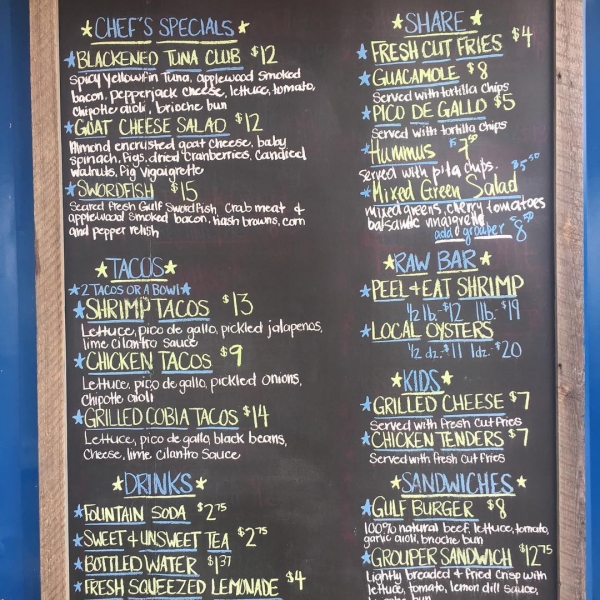 CHEF'S SPECIALS
BLACKENED TUNA CLUB $12
Spicy Yellowfin Tuna, applewood smoked
bacon, pepperjack cheese, lettuce, tomato,
chipotle aioli, brioche bun
GOAT CHEESE SALAD $12
Almond encrusted goat cheese, baby
spinach, figs, dried cranberries, candied
walnuts, fig vigaigrette
SWORDFISH $15
Seared Fresh Gulf Swordfish, Crab meat &
applewood smoked bacon, hash browns, corn
and pepper relish
TACOS
2 TACOS OR A BOWL
SHRIMP TACOS $13
Lettuce, pico de gallo, pickled jalapenos,
lime cilantro sauce
CHICKEN TACOS $9
Lettuce, pico de gallo, pickled onions,
Chipotle aioli
GRILLED COBIA TACOS $14
Lettuce, pico de gallo, black beans,
Cheese, lime cilantro Sauce
DRINKS
FOUNTAIN SODA $2.75
SWEET & UNSWEET TEA $2.75
BOTTLED WATER $1.37
FRESH SQUEEZED LEMONADE $4
SHARE
FRESH CUT FRIES $4
GUACAMOLE $8
Served with tortilla chips
PICO DE GALLO $5
Served with tortilla Chips
Hummus $7.50
served with pita chips.
Mixed Green Salad $5.50
mixed greens, cherry tomatoes
balsamic vinaigrette
add grouper $8.50
RAW BAR
PEEL & EAT SHRIMP
1/2 lb. $12 1 lb. $19
LOCAL OYSTERS
1/2 dz. $11 1 dz. $20
KIDS
GRILLED CHEESE $7
Served with fresh cut fries
CHICKEN TENDERS $7
Served with fresh cut fries
SANDWICHES
GULF BURGER $8
100% natural beef, lettuce, tomato,
garlic aioli, brioche bun
GROUPER SANDWICH $12.75
Lightly breaded & fried crisp with
lettuce, tomato, lemon dill sauce,